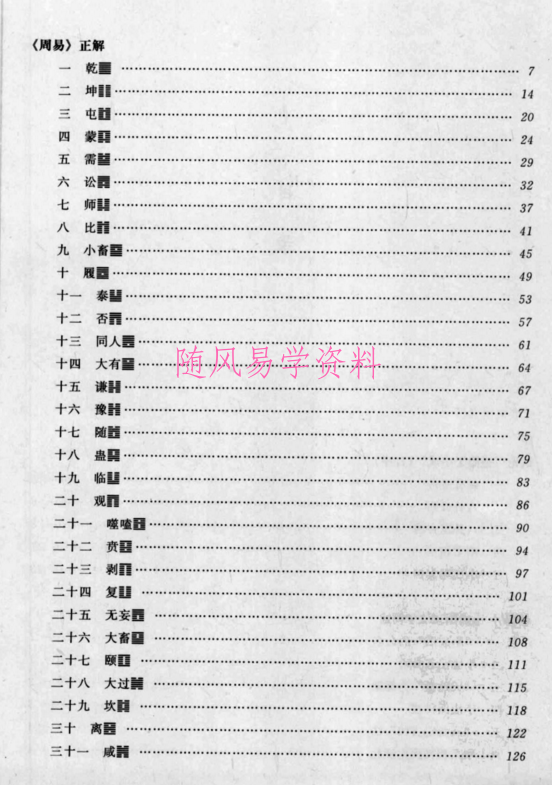 《周易》正解
一 乾䷀ 7
二 坤䷁ 14
三 屯䷂ 20
四 蒙䷃ 24
五 需䷄ 29
六 讼䷅ 32
七 师䷆ 37
八 比䷇ 41
九 小畜䷈ 45
十 履䷉ 49
十一 泰䷊ 53
十二 否䷋ 57
十三 同人䷌ 61
十四 大有䷍ 64
随风易学资料
十五 谦䷎ 67
十六 豫䷏ 71
十七 随䷐ 75
十八 蛊䷑ 79
十九 临䷒ 83
二十 观䷓ 86
二十一 噬嗑䷔ 90
二十二 贲䷕ 94
二十三 剥䷖ 97
二十四 复䷗ 101
二十五 无妄䷘ 104
二十六 大畜䷙ 108
二十七 颐䷚ 111
二十八 大过䷛ 115
二十九 坎䷜ 118
三十 离䷝ 122
三十一 咸䷞ 126